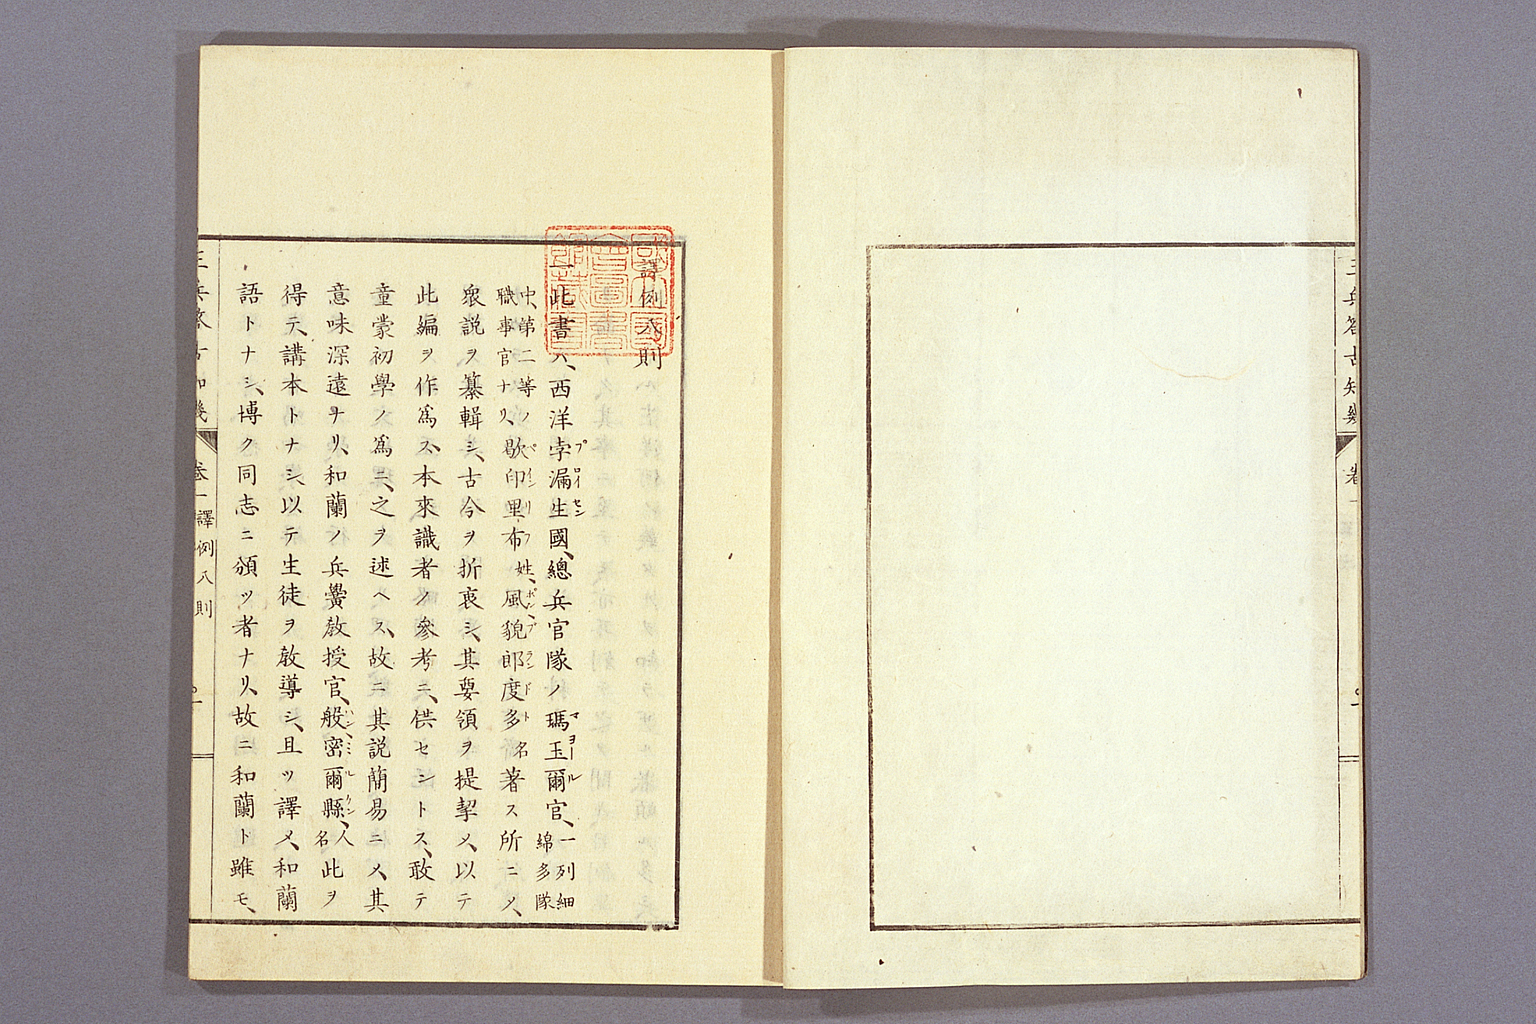 三兵答古知幾
卷一
譯例八則
一此書ハ、西洋孛漏生國、總兵官隊ノ瑪玉爾官、一列細綿多隊
プロイセン
マヨール
中、第二等ノ職事官ナリ、歇印里布姓、風貌郎度多名著ス所ニメ、
ハインリフ
ボン、ブランド
ト
衆說ヲ纂輯シ、古今ヲ折衷シ、其要領ヲ提挈メ、以テ
此編ヲ作爲ス、本來識者ノ參考ニ、供セントス、敢テ
童蒙初學ノ爲ニ、之ヲ述ヘス、故ニ其說簡易ニメ、其
意味深遠ナリ、和蘭ノ兵黌敎授官、般密爾縣、人名此ヲ
ハン、ミルケン
得テ、講本トナシ、以テ生徒ヲ敎導シ、且ツ譯メ、和蘭
語トナシ、博ク同志ニ頒ツ者ナリ、故ニ和蘭ト雖モ、
三兵答古知幾
卷一
譯例八則